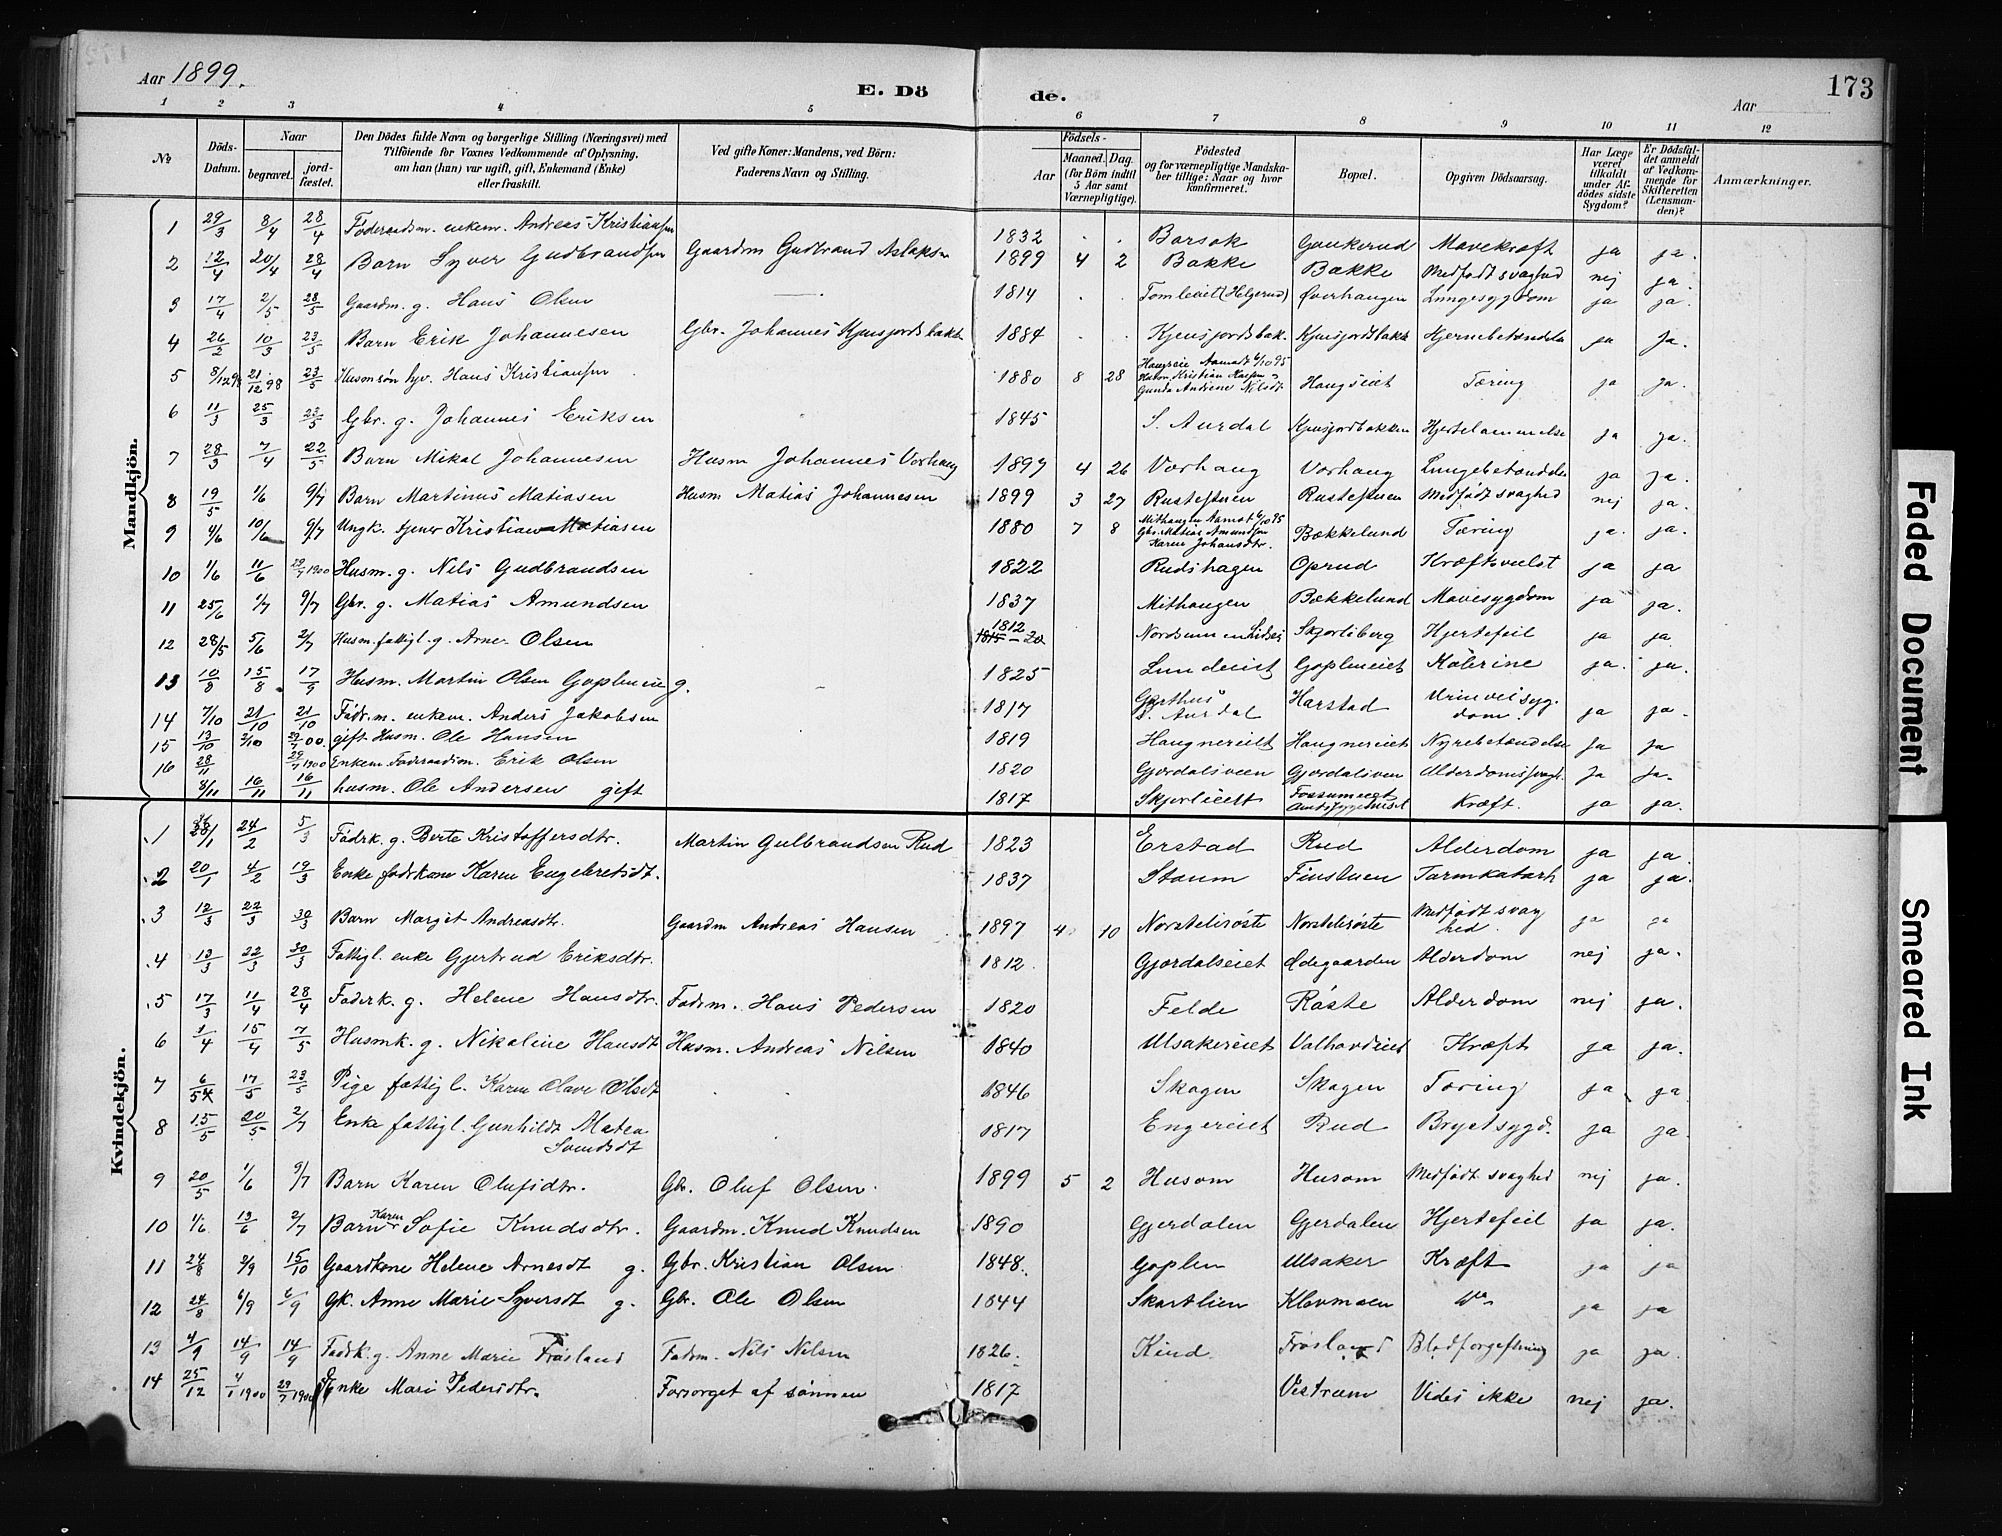 Aar 1899.
E. Dö de.
Aar
173
1 2 3 4 5 6 7 8 9 10 11 12
No
Döds-Datum.
Naar
begravet.
jord-fæstet.
Den Dödes fulde Navn og borgerlige Stilling (Næringsvei) med
Tilföiende for Voxnes Vedkommende af Oplysning,
om han (hun) var ugift, gift, Enkemand (Enke)
eller fraskilt.
Ved gifte Koner: Mandens, ved Börn:
Faderens Navn og Stilling.
Födsels-
Aar
Maaned. Dag.
(for Börn indtil
5 Aar samt
Værnepligtige).
Födested
og for værnepligtige Mandska-
ber tillige: Naar og hvor
konfirmeret.
Bopæl.
Opgiven Dödsaarsag.
Har Læge
været
tilkaldt
under Af-
dödes sidste
Sygdom?
Er Dödsfal-
det anmeldt
af Vedkom-
mende for
Skifteretten
(Lensman-
den)?
Anmærkninger.
Mandkjön.
1 29/3 8/4 28/4 Föderaadsm. enkem. Andreas Kristiansen 1832 Borsok Gaukerud Mavekræft ja ja.
2 12/4 20/4 28/4 Barn Syver Gudbrandsen Gaardm Gudbrand Aslaksn 1899 4 2 Bakke Bakke Medfødt svaghed nej ja.
3 17/4 2/5 28/5 Gaardm. g. Hans Olsen 1814 Tomleiet (Helgerud) Øverhaugen Lungesygdom ja ja.
4 26/2 10/3 23/5 Barn Erik Johannesen Gbr. Johannes 1884 Hjernebetændelse ja ja.
5 8/12 98 21/12 98 23/5 Husmsøn Hans Kristiansen 1880 8 28 Haugseie Aamodt 6/10 95
Husm. Kristian Hansen
Gunda Andrine Nilsdt. Haugseiet Tæring ja ja.
6 11/3 25/3 23/5 Gbr. g. Johannes Eriksen 1845 S. Aurdal Hjertelammelse ja ja.
7 28/3 7/4 22/5 Barn Mikal Johannesen Husm Johannes Vorhaug 1897 4 26 Vorhaug Vorhaug Lungebetændelse ja ja.
8 19/5 1/6 9/7 Barn Martinus Matiasen Husm Matias Johannesen 1899 3 27 Rustestuen Rustestuen Medfødt svaghed nej ja.
9 4/6 10/6 9/7 Ungk. tjener Kristian Matiasen 1880 7 8 Mithaugen Aamot 6/10 95
Gbr. Matias Amundsen
Karen Johansdtr. Bækkelund Tæring ja. ja.
10 1/6 11/6 29/7 1900 Husm. g. Nils Gudbrandsen 1822 Rudshagen Oprud Kræftsvulst ja ja
11 25/6 1/7 9/7 Gbr. g. Matias Amundsen 1837 Mithaugen Bækkelund Mavesygdom ja ja.
12 28/5 5/6 2/7 Husm. fattigl. g. Arne Olsen 1812 1815 - 20 Nordsumen Skjorliberg Hjertefeil ja ja
13 10/8 15/8 17/9 Husm. Martin Olsen Goplen g. 1825 Lundeiet Gopleneiet Kolerine ja. ja.
14 7/10 21/10 21/10 Födr.m. enkem. Anders Jakobsen 1817 Garthus
S. Aurdal Harstad Urinveisyg-
dom. ja ja.
15 13/10 2/10 29/7 00. gift Husm. Ole Hansen 1819 Haugnereiet Haugnereiet Nyrebetændelse ja ja
16 28/11 29/7 1900 Enkem. Föderaadsm. Erik Olsen 1820 Gjordalsveen Gjordalsveen Alderdomssvagh. ja ja.
8/11 16/11 16/11 husm. Ole Andersen gift 1817 Skjorlieiet Fossumeiet Kræft. ja ja.
Kvindekjön.
1 28/1 24/2 5/3 Födrk. g. Berte Kristoffersdtr. Martin Gulbrandsen Rud 1823 Erstad Rud Alderdom ja ja.
2 20/1 4/2 19/3 Enke fodrkone Karen Engebretsdt. 1837 Staum Finstuen Tarmkatarh ja ja.
3 12/3 22/3 30/3 Barn Margit Andreasdtr. Gaardm Andreas Hansen 1897 4 10 Norstelirøste Norstelirøste Medfødt svag
hed ja ja
4 13/3 22/3 30/3 Fattigl. enke Gjertrud Eriksdtr. 1812. Gjordalseiet Ødegaarden Alderdom nej ja.
5 17/3 11/4 28/4 Foderk. g. Helene Hansdtr. Fodrm. Hans Pedersen 1820 Felde Røste Alderdom nej ja.
6 1/4 15/4 7/5 Husmk. g. Nikoline Hansdt Husm. Andreas Nilsen 1840 Ulsakereiet Valhovdeiet Kræft ja ja.
7 6/5 17/5 23/5 Pige fattigl. Karen Olave Olsdt 1846 Skogen Skogen Tæring ja ja
8 15/5 20/5 2/7 Enke fattigl. Gunhildt Matea
Svendsdt 1817 Engereiet Rud Brystsygd. ja ja.
9 20/5 1/6 9/7 Barn Karen Olufsdtr. Gbr. Oluf Olsen. 1899 5 2 Husom Husom Medfødt svaghed nej ja.
10 1/6 13/6 2/7 Barn Karen Sofie Knudsdtr. Gaardm. Knud Knudsen 1890 Gjerdalen Gjerdalen Hjertefeil ja ja.
11 24/8 2/9 15/10 Gaardkone Helene Arnesdt g. Gbr. Kristian Olsen 1848. Goplen Ulsaker Kræft ja ja
12 24/8 6/9 6/9 Gk. Anne Marie Syversdt g. Gbr. Ole Olsen 1844 Skartlien Klevmoen ja ja
13 4/9 14/9 14/9 Fodrk. g. Anne Marie Frøsland Fodrm. Nils Nilsen 1826. Kind Frøsland Blodforgiftning ja ja.
14 25/12 4/1 1900 29/7 1900 Enke Mari Pedersdtr. Forsørget af sønnen 1817 Vestrum Vides ikke nej ja.
Faded Document
Smeared Ink